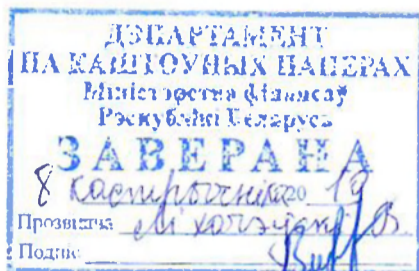 ДЭПАРТАМЕНТ
ПА КАШТОЎНЫХ ПАПЕРАХ
Міністэрства фінансаў
Рэспублікі Беларусь
ЗАВЕРАНА
8 кастрычніка 20 19
Прозвішча
Подпіс